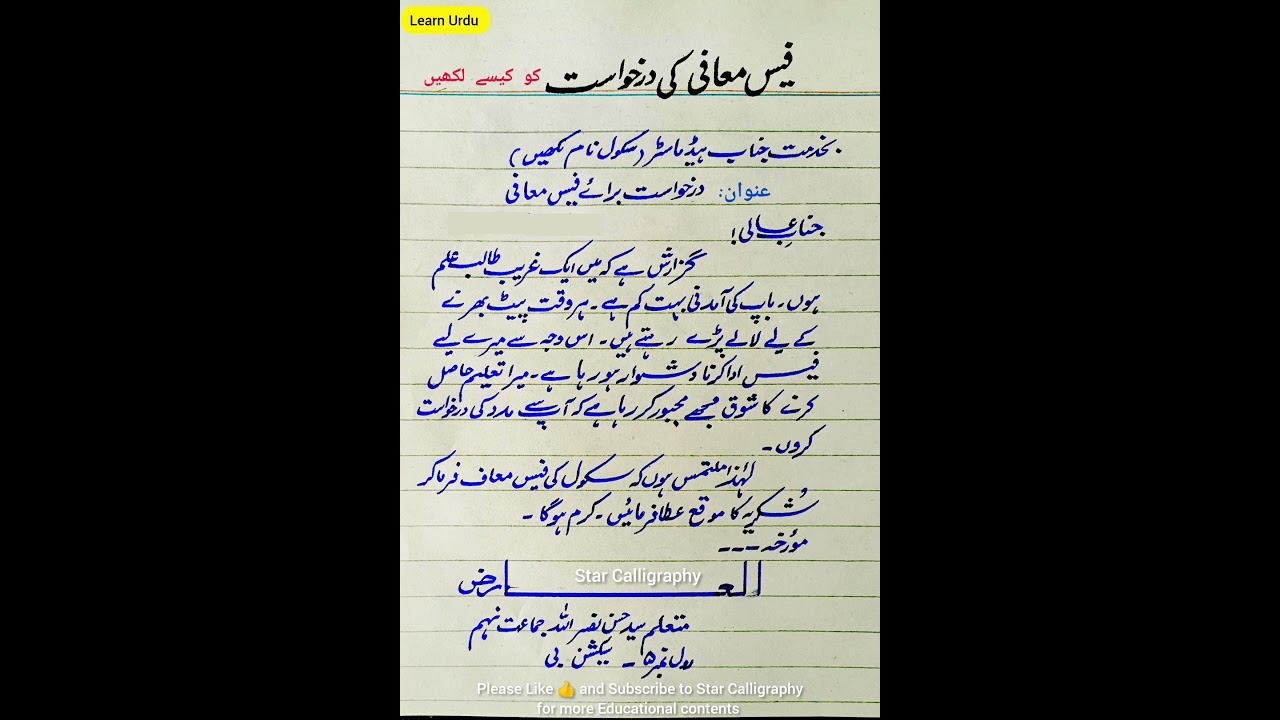 Learn Urdu
فیس معافی کی درخواست کو کیسے لکھیں
بخدمت جناب ہیڈ ماسٹر (سکول نام لکھیں)
عنوان: درخواست برائے فیس معافی
جنابِ عالی!
گزارش ہے کہ میں ایک غریب طالب علم
ہوں۔ باپ کی آمدنی بہت کم ہے۔ ہر وقت پیٹ بھرنے
کے لیے لالے پڑے رہتے ہیں۔ اس وجہ سے میرے لیے
فیس ادا کرنا دشوار ہو رہا ہے۔ میرا تعلیم حاصل
کرنے کا شوق مجھے مجبور کر رہا ہے کہ آپ سے مدد کی درخواست
کروں۔
لہٰذا ملتمس ہوں کہ سکول کی فیس معاف فرما کر
شُکریہ کا موقع عطا فرمائیں۔ کرم ہوگا۔
مؤرخہ ---
العارض
Star Calligraphy
متعلم سید حسن نصر اللہ جماعت نہم
رول نمبر ۵ - سیکشن بی
Please Like 👍 and Subscribe to Star Calligraphy
for more Educational contents